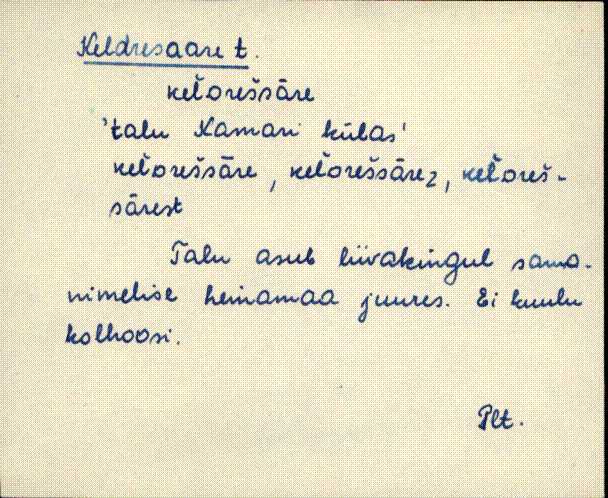 Keldresaare t.
keľdrešsāre
'talu Kamari külas'
keľdrešsāre, keľdrešsārez, keľdreš-
sārest
Talu asub liivakingul sama-
nimelise heinamaa juures. Ei kuulu
kolhoosi.
Plt.